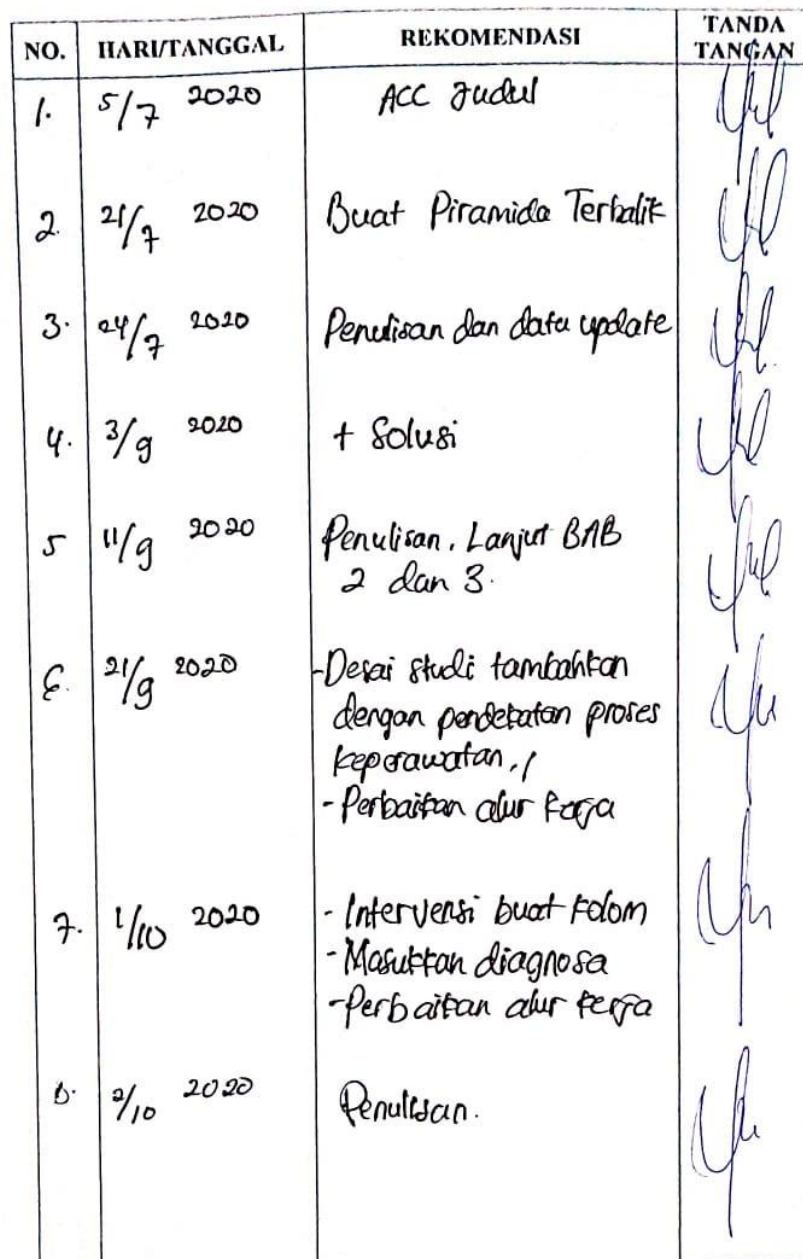 NO. HARI/TANGGAL REKOMENDASI TANDA TANGAN
1. 5/7 2020 ACC Judul
2. 21/7 2020 Buat Piramida Terbalik
3. 24/7 2020 Penulisan dan data update
4. 3/9 2020 + Solusi
5 11/9 2020 Penulisan. Lanjut BAB
2 dan 3.
6. 21/9 2020 -Desai studi tambahkan
dengan pendekatan proses
keperawatan,
- Perbaikan alur kerja
7. 1/10 2020 - Intervensi buat kolom
- Masukkan diagnosa
- Perbaikan alur kerja
8. 2/10 2020 Penulisan.